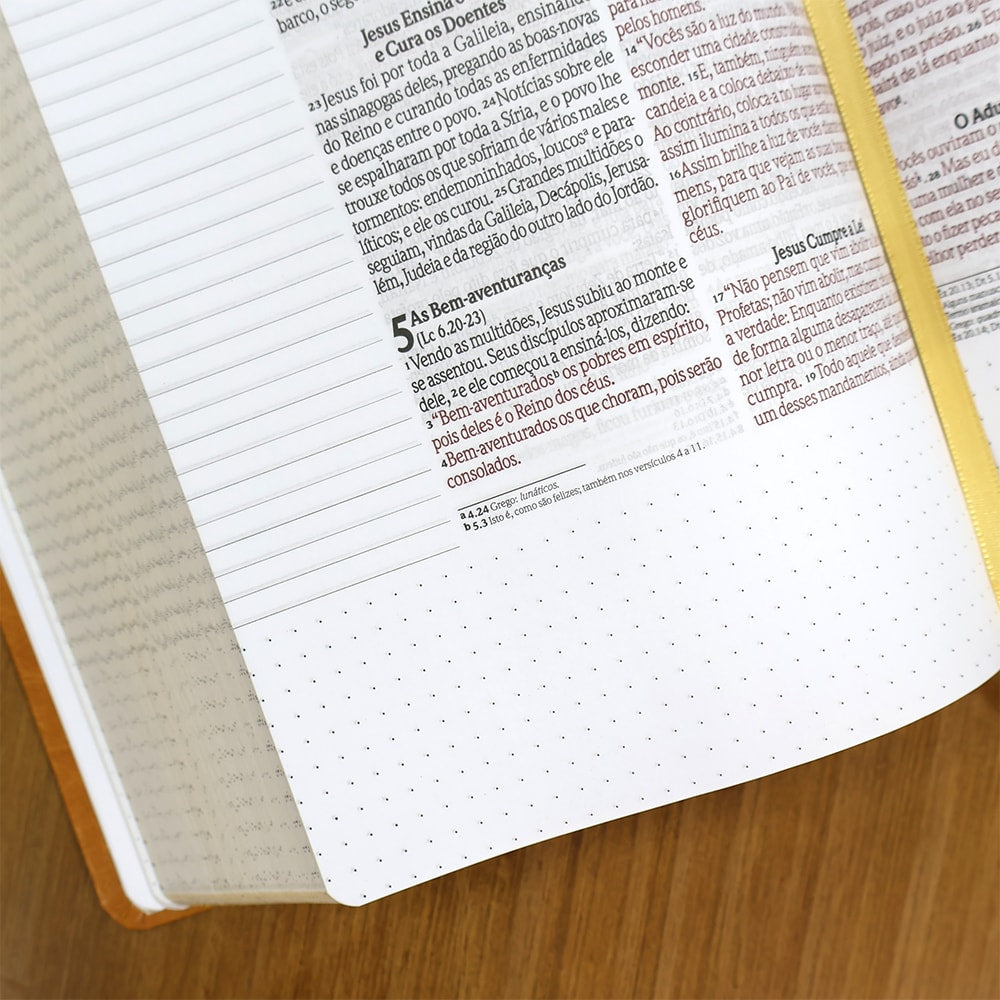 22 E
barco, o seg
Jesus Ensina
e Cura os Doentes
23 Jesus foi por toda a Galileia, ensinando
nas sinagogas deles, pregando as boas-novas
do Reino e curando todas as enfermidades
e doenças entre o povo. 24 Notícias sobre ele
se espalharam por toda a Síria, e o povo lhe
trouxe todos os que sofriam de vários males e
tormentos: endemoninhados, loucosᵃ e para-
líticos; e ele os curou. 25 Grandes multidões o
seguiam, vindas da Galileia, Decápolis, Jerusa-
lém, Judeia e da região do outro lado do Jordão.
As Bem-aventuranças
5 (Lc 6.20-23)
1 Vendo as multidões, Jesus subiu ao monte e
se assentou. Seus discípulos aproximaram-se
dele, 2 e ele começou a ensiná-los, dizendo:
3 “Bem-aventuradosᵇ os pobres em espírito,
pois deles é o Reino dos céus.
4 Bem-aventurados os que choram, pois serão
consolados.
a 4.24 Grego: lunáticos.
b 5.3 Isto é, como são felizes; também nos versículos 4 a 11.
pelos homens.
14 “Vocês são a luz do mundo.
esconder uma cidade
monte. 15 E, também, ninguém
candeia e a coloca debaixo de
Ao contrário, coloca-a no lugar
assim ilumina a todos os que estão
16 Assim brilhe a luz de vocês diante
mens, para que vejam as suas
glorifiquem ao Pai de vocês,
céus.
Jesus Cumpre a Lei
17 “Não pensem que vim abolir
Profetas; não vim abolir, mas
a verdade: Enquanto existirem
de forma alguma desaparecerá
nor letra ou o menor traço, até
cumpra. 19 Todo aquele que
um desses mandamentos,
juiz, e o juiz ao
na prisão. 26
de lá enquanto
O Adu
ocês ouviram
28 Mas eu
mulher e
com ela no
o fizer
melhor perder